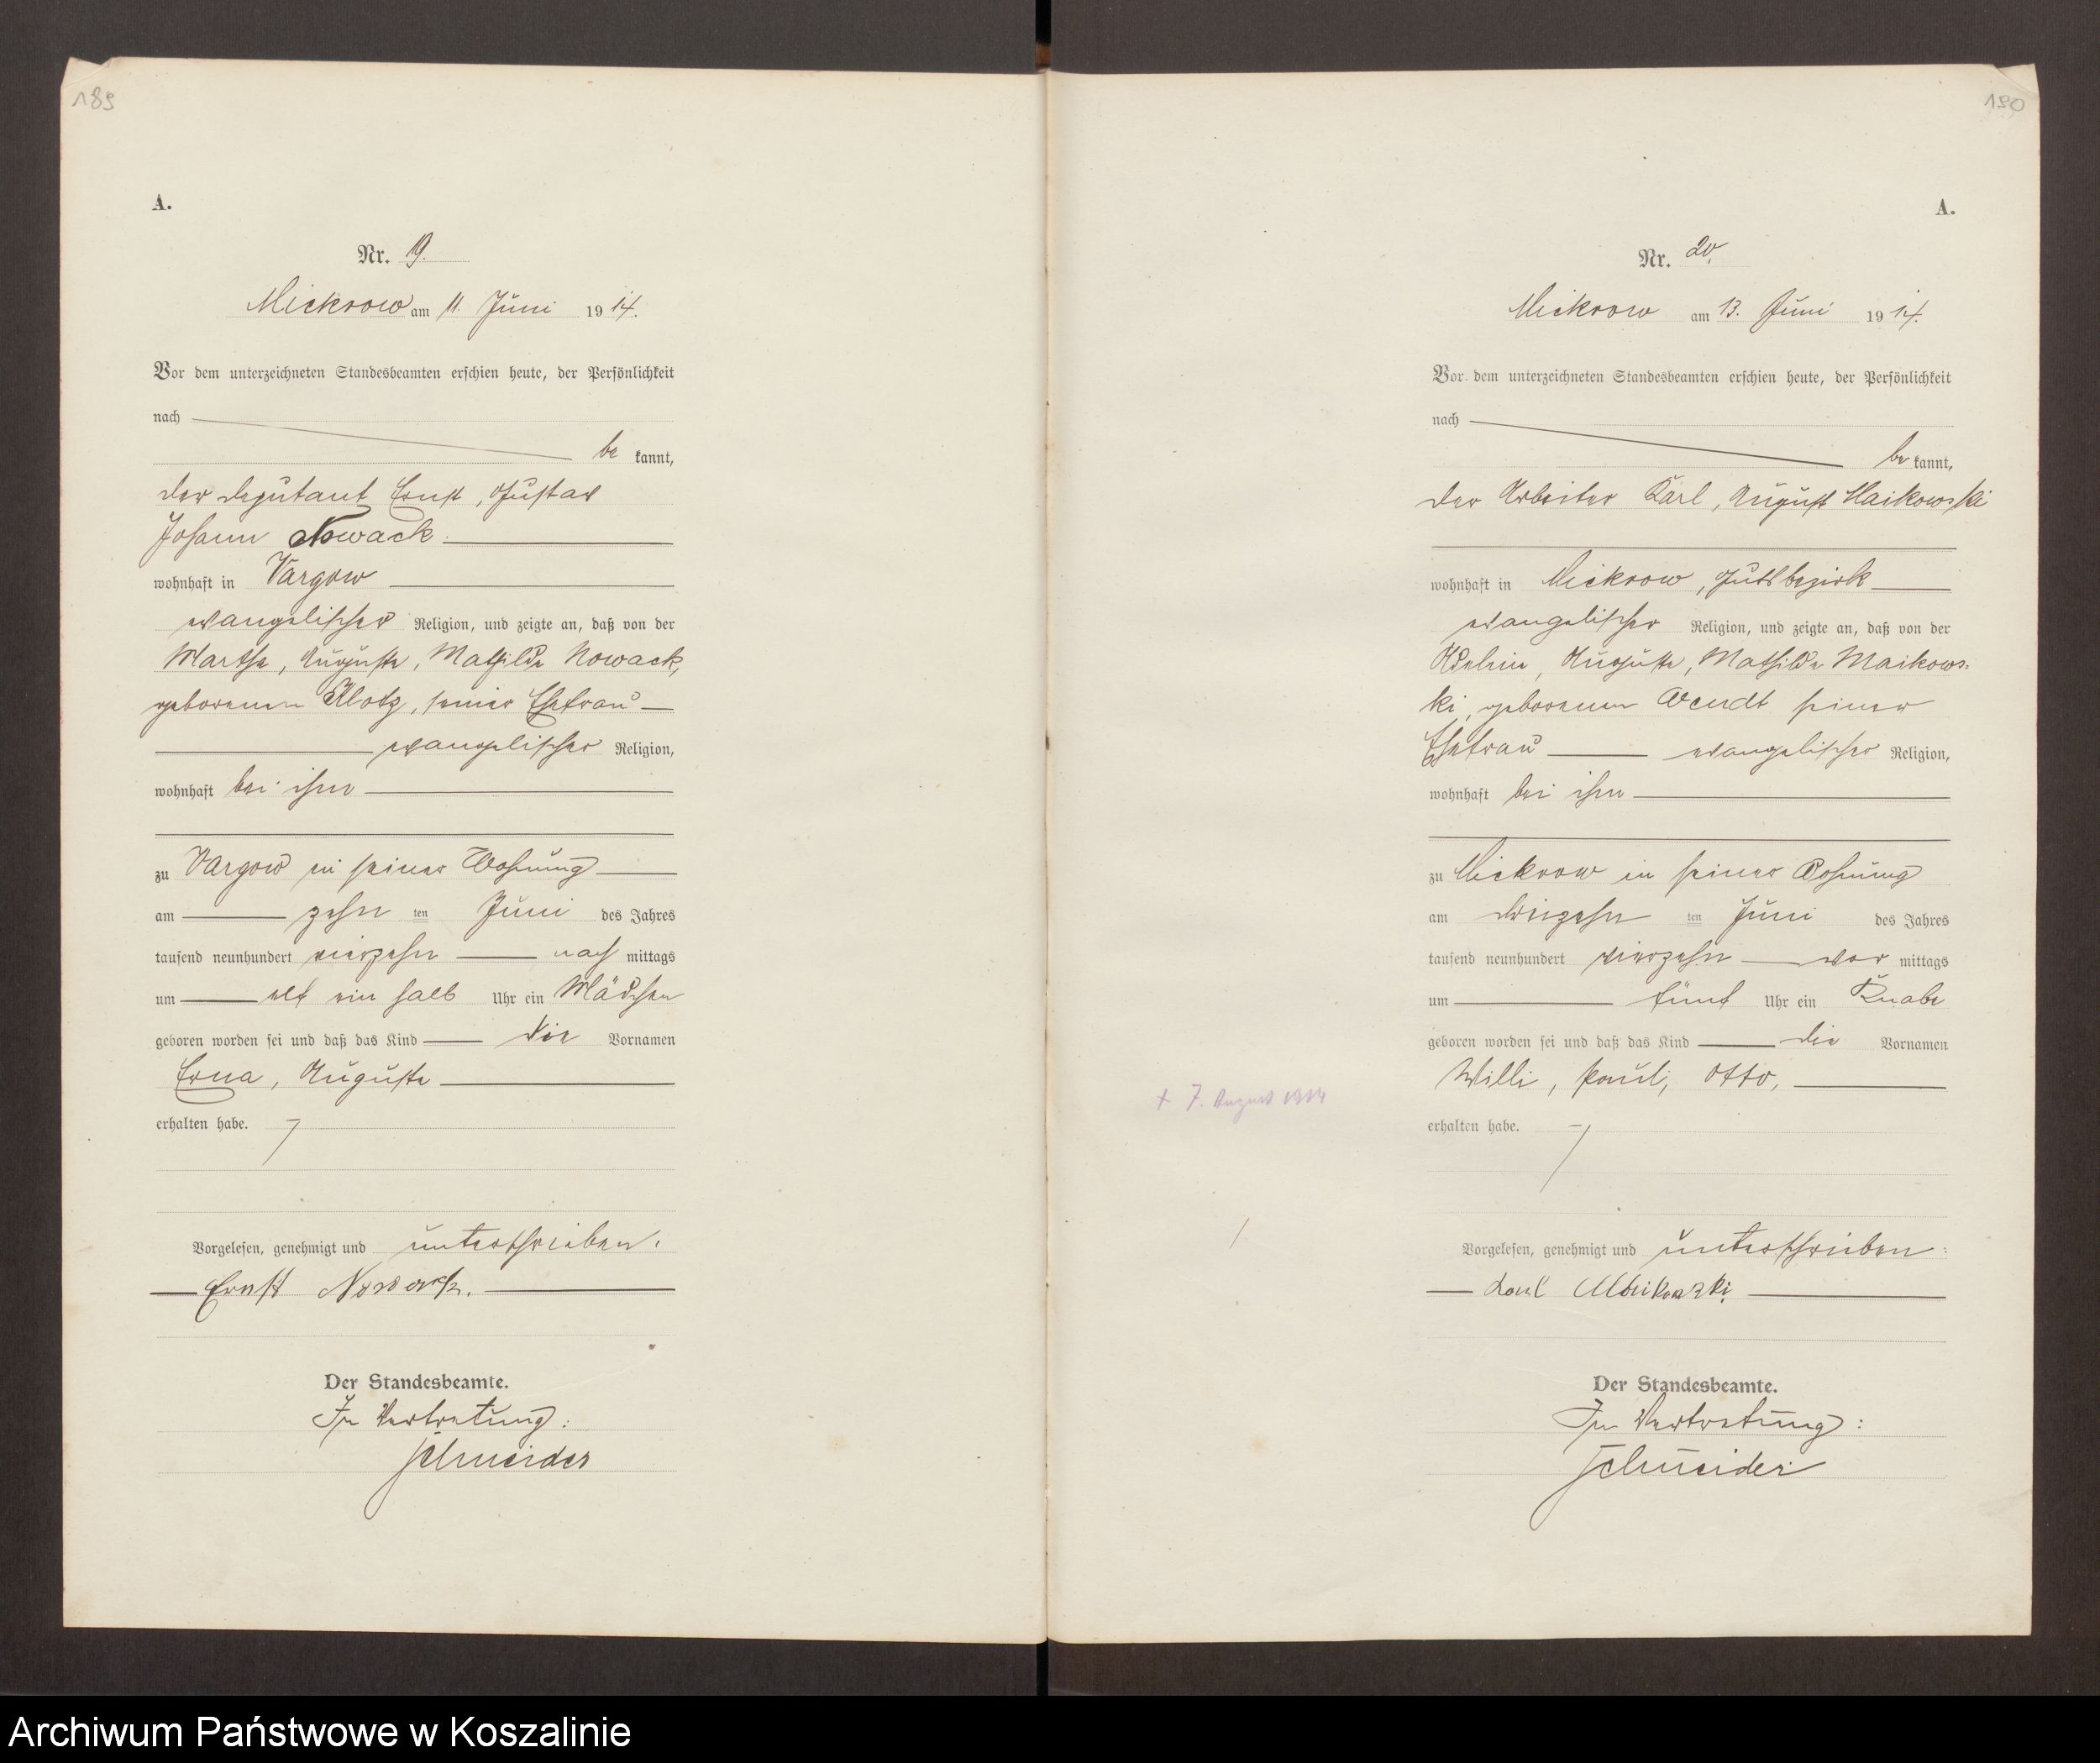 189
A.
Nr. 19.
Mickrow am 11. Juni 1914.
Vor dem unterzeichneten Standesbeamten erschien heute, der Persönlichkeit
nach
be kannt,
der Deputant Ernst, Gustav
Johann Nowack
wohnhaft in Vargow
evangelischer Religion, und zeigte an, daß von der
Martha, Auguste, Mathilde Nowack,
geborenen Klotz, seiner Ehefrau
evangelischer Religion,
wohnhaft bei ihm
zu Vargow in seiner Wohnung
am zehn ten Juni des Jahres
tausend neunhundert vierzehn nach mittags
um elf ein halb Uhr ein Mädchen
geboren worden sei und daß das Kind die Vornamen
Erna, Auguste
erhalten habe.
Vorgelesen, genehmigt und unterschrieben.
Ernst Nowack.
Der Standesbeamte.
In Vertretung:
Schneider
190
A.
Nr. 20.
Mickrow am 13. Juni 1914.
Vor dem unterzeichneten Standesbeamten erschien heute, der Persönlichkeit
nach
be kannt,
der Arbeiter Karl, August Maikowski
wohnhaft in Mickrow, Gutsbezirk
evangelischer Religion, und zeigte an, daß von der
Auguste, Mathilde Maikows-
ki, geborenen Wendt seiner
Ehefrau evangelischer Religion,
wohnhaft bei ihm
zu Mickrow in seiner Wohnung
am dreizehn ten Juni des Jahres
tausend neunhundert vierzehn vor mittags
um fünf Uhr ein Knabe
geboren worden sei und daß das Kind die Vornamen
Willi, Paul, Otto,
+ 7. August 1914
erhalten habe.
Vorgelesen, genehmigt und unterschrieben:
Karl Maikowski
Der Standesbeamte.
In Vertretung:
Schneider
Archiwum Państwowe w Koszalinie